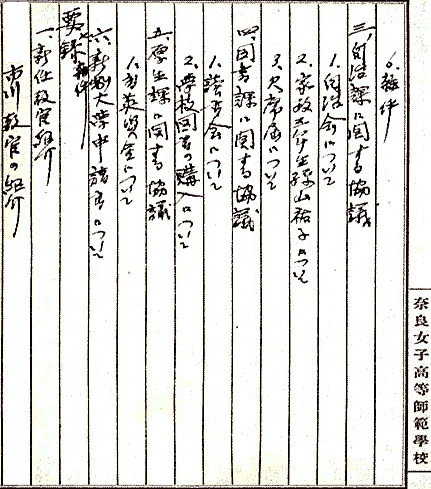 6. 雑件
三、自治課に関する協議
1. 自治会について
2. 家政 年生 山裕子について
3. 欠席届について
四、図書課に関する協議
1. 読書会について
2. 学校図書の購入について
五、厚生課に関する協議
1. 育英資金について
六、新制大学申請書について
要録
一、新任教官紹介
市川教官の紹介
奈良女子高等師範學校